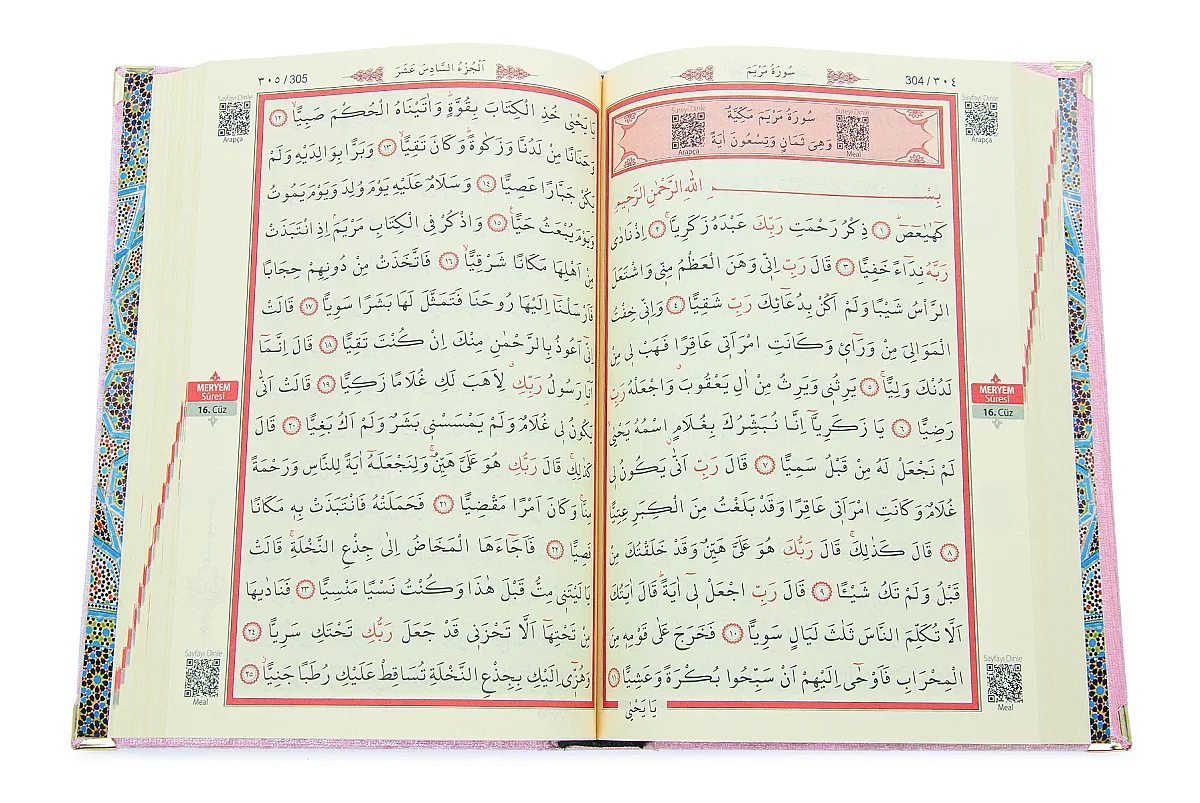 304 / ٣٠٤
سُورَةُ مَرْيَمَ
Sayfayı Dinle
Arapça
Sureyi Dinle
Arapça
Sureyi Dinle
Meal
سُورَةُ مَرْيَمَ مَكِّيَّةٌ
وَهِىَ ثَمَانٍ وَتِسْعُونَ اٰيَةً
بِسْــــمِ اللّٰهِ الرَّحْمٰنِ الرَّحِيمِ
كٓهٰيٰعٓصٓ ﴿١﴾ ذِكْرُ رَحْمَتِ رَبِّكَ عَبْدَهُ زَكَرِيَّا ﴿٢﴾ اِذْ نَادٰى
رَبَّهُ نِدَٓاءً خَفِيًّا ﴿٣﴾ قَالَ رَبِّ اِنّٖى وَهَنَ الْعَظْمُ مِنّٖى وَاشْتَعَلَ
الرَّأْسُ شَيْبًا وَلَمْ اَكُنْ بِدُعَٓائِكَ رَبِّ شَقِيًّا ﴿٤﴾ وَاِنّٖى خِفْتُ
الْمَوَالِىَ مِنْ وَرَٓائٖى وَكَانَتِ امْرَاَتٖى عَاقِرًا فَهَبْ لٖى مِنْ
لَدُنْكَ وَلِيًّا ﴿٥﴾ يَرِثُنٖى وَيَرِثُ مِنْ اٰلِ يَعْقُوبَ وَاجْعَلْهُ رَبِّ
رَضِيًّا ﴿٦﴾ يَا زَكَرِيَّٓا اِنَّا نُبَشِّرُكَ بِغُلَامٍ اسْمُهُ يَحْيٰى
لَمْ نَجْعَلْ لَهُ مِنْ قَبْلُ سَمِيًّا ﴿٧﴾ قَالَ رَبِّ اَنّٰى يَكُونُ لٖى
غُلَامٌ وَكَانَتِ امْرَاَتٖى عَاقِرًا وَقَدْ بَلَغْتُ مِنَ الْكِبَرِ عِتِيًّا
﴿٨﴾ قَالَ كَذٰلِكَ قَالَ رَبُّكَ هُوَ عَلَىَّ هَيِّنٌ وَقَدْ خَلَقْتُكَ مِنْ
قَبْلُ وَلَمْ تَكُ شَيْـًٔا ﴿٩﴾ قَالَ رَبِّ اجْعَلْ لٖٓى اٰيَةً قَالَ اٰيَتُكَ
اَلَّا تُكَلِّمَ النَّاسَ ثَلٰثَ لَيَالٍ سَوِيًّا ﴿١٠﴾ فَخَرَجَ عَلٰى قَوْمِهٖ مِنَ
الْمِحْرَابِ فَاَوْحٰٓى اِلَيْهِمْ اَنْ سَبِّحُوا بُكْرَةً وَعَشِيًّا ﴿١١﴾
يَا يَحْيٰى
MERYEM
Sûresi
16. Cüz
Sayfayı Dinle
Meal
٣٠٥ / 305
اَلْجُزْءُ السَّادِسَ عَشَرَ
Sayfayı Dinle
Arapça
يَا يَحْيٰى خُذِ الْكِتَابَ بِقُوَّةٍ وَاٰتَيْنَاهُ الْحُكْمَ صَبِيًّا ﴿١٢﴾
وَحَنَانًا مِنْ لَدُنَّا وَزَكٰوةً وَكَانَ تَقِيًّا ﴿١٣﴾ وَبَرًّا بِوَالِدَيْهِ وَلَمْ
يَكُنْ جَبَّارًا عَصِيًّا ﴿١٤﴾ وَسَلَامٌ عَلَيْهِ يَوْمَ وُلِدَ وَيَوْمَ يَمُوتُ
وَيَوْمَ يُبْعَثُ حَيًّا ﴿١٥﴾ وَاذْكُرْ فِى الْكِتَابِ مَرْيَمَ اِذِ انْتَبَذَتْ
مِنْ اَهْلِهَا مَكَانًا شَرْقِيًّا ﴿١٦﴾ فَاتَّخَذَتْ مِنْ دُونِهِمْ حِجَابًا
فَاَرْسَلْنَٓا اِلَيْهَا رُوحَنَا فَتَمَثَّلَ لَهَا بَشَرًا سَوِيًّا ﴿١٧﴾ قَالَتْ
اِنّٖٓى اَعُوذُ بِالرَّحْمٰنِ مِنْكَ اِنْ كُنْتَ تَقِيًّا ﴿١٨﴾ قَالَ اِنَّمَٓا
اَنَا۬ رَسُولُ رَبِّكِ لِاَهَبَ لَكِ غُلَامًا زَكِيًّا ﴿١٩﴾ قَالَتْ اَنّٰى
يَكُونُ لٖى غُلَامٌ وَلَمْ يَمْسَسْنٖى بَشَرٌ وَلَمْ اَكُ بَغِيًّا ﴿٢٠﴾ قَالَ
كَذٰلِكِ قَالَ رَبُّكِ هُوَ عَلَىَّ هَيِّنٌ وَلِنَجْعَلَهُٓ اٰيَةً لِلنَّاسِ وَرَحْمَةً
مِنَّا وَكَانَ اَمْرًا مَقْضِيًّا ﴿٢١﴾ فَحَمَلَتْهُ فَانْتَبَذَتْ بِهٖ مَكَانًا
قَصِيًّا ﴿٢٢﴾ فَاَجَٓاءَهَا الْمَخَاضُ اِلٰى جِذْعِ النَّخْلَةِ قَالَتْ
يَا لَيْتَنٖى مِتُّ قَبْلَ هٰذَا وَكُنْتُ نَسْيًا مَنْسِيًّا ﴿٢٣﴾ فَنَادٰيهَا
مِنْ تَحْتِهَٓا اَلَّا تَحْزَنٖى قَدْ جَعَلَ رَبُّكِ تَحْتَكِ سَرِيًّا ﴿٢٤﴾
وَهُزّٖٓى اِلَيْكِ بِجِذْعِ النَّخْلَةِ تُسَاقِطْ عَلَيْكِ رُطَبًا جَنِيًّا ﴿٢٥﴾
MERYEM
Sûresi
16. Cüz
Sayfayı Dinle
Meal